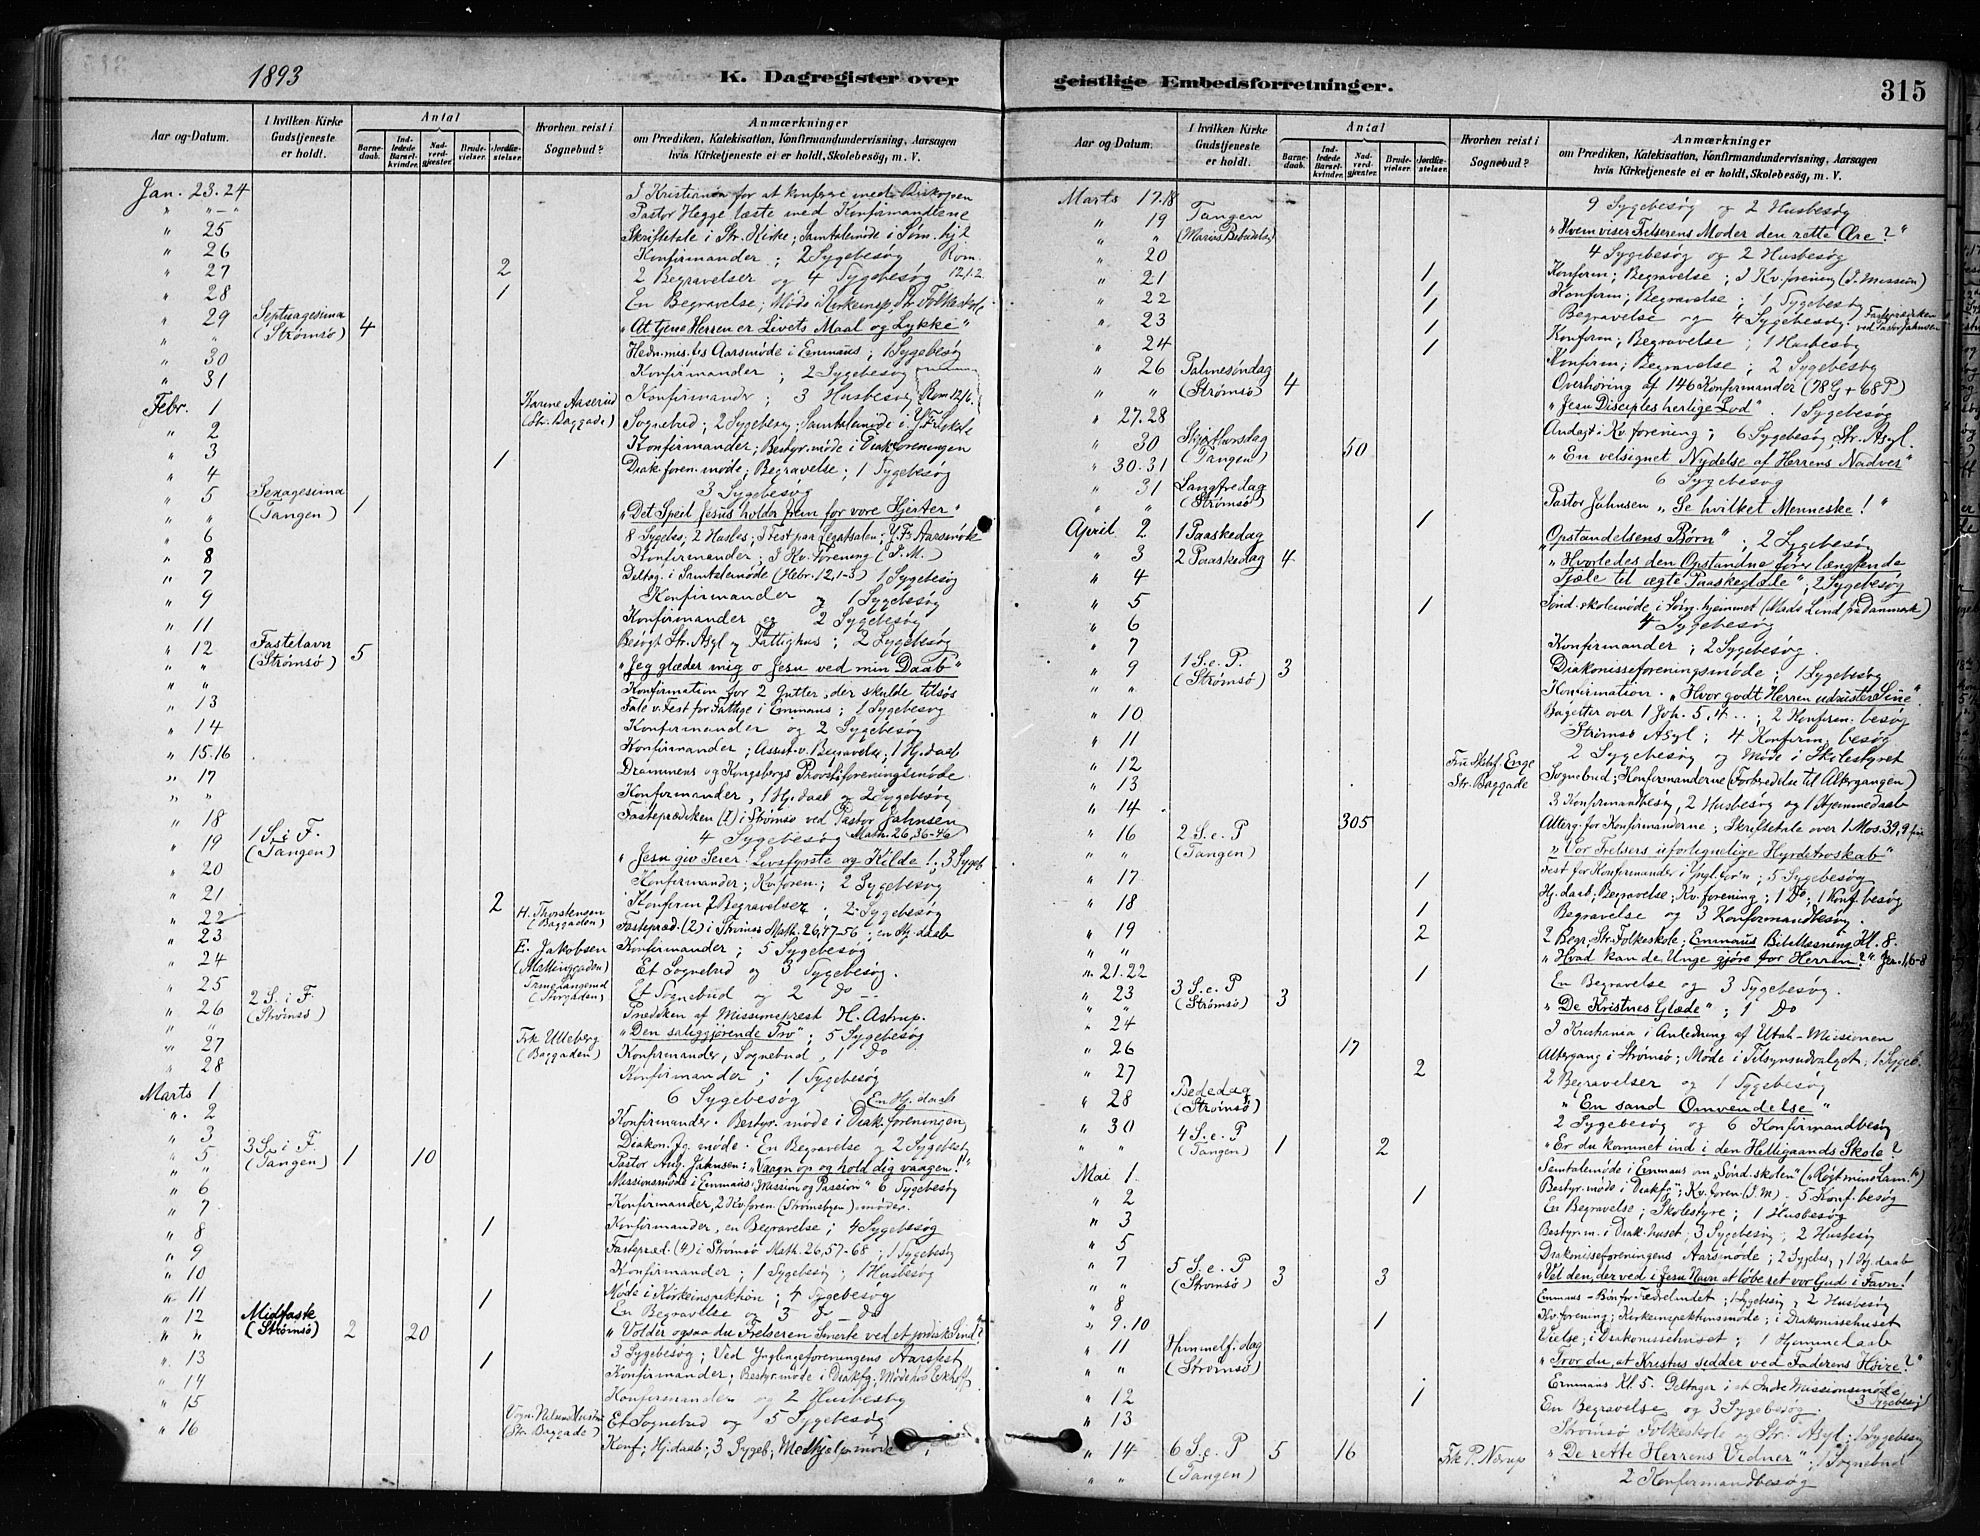 1893
K. Dagregister over
Aar og Datum.
I hvilken Kirke Gudstjeneste er holdt.
Antal
Barnedaab.
Indledede Barselkvinder.
Nadverdgjester.
Brudevielser.
Jordfæstelser.
Hvorhen reist i Sognebud?
Anmærkninger
om Prædiken, Katekisation, Konfirmandundervisning, Aarsagen
hvis Kirketjeneste ei er holdt, Skolebesøg, m. V.
Jan. 23.24 I Kristiania for at konferere med Biskopen
" "-" Pastor Hegge læste med Konfirmanderne
" 25 Skriftetale i Str. Kirke; Samtalemøde i Søm. hj 2
" 26 Konfirmander; 2 Sygebesøg Rom.
" 27 2 2 Begravelser og 4 Sygebesøg 12,1.2.
" 28 1 En Begravelse; Møde i Kirkeinsp, Str. Folkeskole
" 29 Septuagesima (Strømsø) 4 "At tjene Herren er Livets Maal og Lykke"
" 30 Hedn. mis. tes Aarsmøde i Emmaus; 1 Sygebesøg
" 31 Konfirmander; 2 Sygebesøg
Febr. 1 Konfirmander; 3 Husbesøg Rom 12,6.
" 2 Karine Aaserud (Str. Baggade) Sognebud; 2 Sygebesøg; Samtalemøde i Y. F. Lokale
" 3 Konfirmander; Bestyr. møde i Diak foreningen
" 4 1 Diak. foren. møde; Begravelse; 1 Sygebesøg
3 Sygebesøg
" 5 Sexagesima (Tangen) 1 "Det Speil Jesus holder frem for vore Hjerter"
" 6 8 Sygebes, 2 Husbes; I Fest paa Legatsalen; Y. F. Aarsmøde
" 8 Konfirmander; I Kv. Forening (I. M.)
" 7 Deltog i Samtalemøde (Hebr. 12,1-3) 1 Sygebesøg
" 9 Konfirmander og 1 Sygebesøg
" 11 Konfirmander og 2 Sygebesøg
" 12 Fastelavn (Strømsø) 5 Besøgt Str. Asyl og Fattighus; 2 Sygebesøg
" " "Jeg glæder mig o Jesu ved min Daab"
" " Konfirmation for 2 Gutter, der skulde tilsøs
" 13 Tale v. Fest for Fattige i Emmaus; 1 Sygebesøg
" 14 Konfirmander og 2 Sygebesøg
" 15.16 Konfirmander; Assist. v. Begravelse, 1 Hj. daab
" 17 Drammens og Kongsbergs Provstiforeningsmøde.
" " Konfirmander, 1 Hj. daab og 2 Sygebesøg
" 18 Fasteprædiken (1) i Strømsø ved Pastor Jahnsen
4 Sygebesøg Math. 26,36-46
" 19 1 S. i F. (Tangen) "Jesu giv Seier: Livsfyrste og Kilde!; 3 Sygeb.
" 20 Konfirmander; Kv. foren.; 2 Sygebesøg
" 21 2 Konfirm 2 Begravelser; 2 Sygebesøg
" 22 H. Thorstensen (Baggaden) Fastepræd. (2) i Strømsø Math. 26,47-56; en Hj. daab
" 23 E. Jakobsen Konfirmander; 5 Sygebesøg
" 24 Et Sognebud og 3 Sygebesøg.
" 25 (Storgaden) Et Sognebud og 2 Do
" 26 2 S. i F. (Strømsø) Prædiken af Missionsprest H. Astrup.
" " "Den saliggjørende Tro"; 5 Sygebesøg
" 27 Frk Ulleberg (Baggaden) Konfirmander, Sognebud, 1 Do
" 28 Konfirmander; 1 Sygebesøg
Marts 1 6 Sygebesøg En Hj. daab
" 2 Konfirmander. Bestyr. møde i Diak foreningen
" 3 Diakon. fg. møde. En Begravelse og 2 Sygebesøg
" 5 3 S. i F. (Tangen) 1 10 Pastor Aug. Jahnsen: "Vaagn op og hold dig vaagen!"
" 6 Missionsmøde i Emmaus "Mission og Passion" 6 Sygebesøg
" 7 Konfirmander, 2 Kv. foren. (Strømsbyen) møder.
" 8 1 Konfirmander, en Begravelse; 4 Sygebesøg
" 9 Fastepræd. (4) i Strømsø Math. 26,57-68; 1 Sygebesøg
" 10 Konfirmander; 1 Sygebesøg; 1 Husbesøg
" 11 1 Møde i Kirkeinspektion; 4 Sygebesøg
" 12 Midfaste (Strømsø) 2 20 En Begravelse og 3 Do
" " "Volder ogsaa du Frelseren Smerte ved et jordisk Sind?"
" 13 1 3 Sygebesøg; Ved Ynglingeforeningens Aarsfest
" 14 Konfirmander; Bestyr. møde i Diakfg; Møde hos Eckhoff
" 15 Konfirmander og 2 Husbesøg
" 16 (Str. Baggade) Et Sognebud og 5 Sygebesøg
Konf; Hj. daab; 3 Sygeb; Medhjelp. møde;
geistlige Embedsforretninger.
315
Aar og Datum.
I hvilken Kirke Gudstjeneste er holdt.
Antal
Barnedaab.
Indledede Barselkvinder.
Nadverdgjester.
Brudevielser.
Jordfæstelser.
Hvorhen reist i Sognebud?
Anmærkninger
om Prædiken, Katekisation, Konfirmandundervisning, Aarsagen
hvis Kirketjeneste ei er holdt, Skolebesøg, m. V.
Marts 17.18 9 Sygebesøg og 2 Husbesøg
" 19 Tangen (Mariæ Bebudelse) "Hvem viser Frelserens Moder den rette Ære?"
" 20 4 Sygebesøg og 2 Husbesøg
" 21 1 Konfirm; Begravelse; I Kv. forening (I. Mission)
" 22 1 Konfirm; Begravelse; 1 Sygebesøg
" 23 1 Begravelse og 4 Sygebesøg. Fasteprædiken ved Pastor Jahnsen
" 24 1 Konfirm; Begravelse; 1 Husbesøg
Konfirm; Begravelse; 2 Sygebesøg
" 26 Palmesøndag (Strømsø) 4 Overhøring af 146 Konfirmander (78 G + 68 P)
" " "Jesu Disciples herlige Lod". 1 Sygebesøg
" 27.28 Andagt i Kv. forening; 6 Sygebesøg, Str. Asyl.
" 30 Skjærthorsdag (Tangen) 50 "En velsignet Nydelse af Herrens Nadver"
" 30.31 6 Sygebesøg
" 31 Langfredag (Strømsø) Pastor Jahnsen "Se hvilket Menneske!"
April 2 1 Paaskedag 1 "Opstandelsens Børn"; 2 Sygebesøg
" 3 2 Paaskedag 4 "Hvorledes den Opstandne fører længtende
" 4 Sjæle til ægte Paaskeglæde"; 2 Sygebesøg
" 5 1 Sønd. skolemøde i Søm. hjemmet (Mads Lund fra Danmark)
" 6 4 Sygebesøg
" 7 Konfirmander; 2 Sygebesøg.
" 9 1 S. e. P. (Strømsø) 3 Diakonisseforeningsmøde; 1 Sygebesøg
" " Konfirmation. "Hvor godt Herren udruster Sine".
" 10 Bagefter over 1 Joh. 5,4..; 2 Konfirm. besøg
" 11 Strømsø Asyl; 4 Konfirm. besøg
" 12 2 Sygebesøg og Møde i Skolestyret
" 13 Str. Baggade Sognebud; Konfirmanderne (Forberedelse til Altergangen)
" 14 3 Konfirmandbesøg, 2 Husbesøg og 1 Hjemmedaab
" 16 2 S. e. P (Tangen) 305 Alterg. for Konfirmanderne; Skriftetale over 1 Mos. 39,9
" " "Vor Frelsers uforlignelige Hyrdetroskab"
" 17 1 Fest for Konfirmander i Yngl. for'n; 5 Sygebesøg
" 18 1 Hj. daab; Begravelse; Kv. forening; 1 Do, 1 Konf. besøg
Begravelse og 3 Konfirmandbesøg.
" 19 2 2 Begr. Str. Folkeskole; Emmaus Bibellæsning Kl. 8.
" " "Hvad kan de Unge gjøre for Herren?" Jer. 1,6-8
" 21.22 1 En Begravelse og 3 Sygebesøg.
" 23 3 S. e. P (Strømsø) 3 "De Kristnes Glæde"; 1 Do
" 24 I Kristiania i Anledning af Utah-Missionen
" 26 17 Altergang i Strømsø; Møde i Tilsynsudvalget, 1 Sygeb.
" 27 2 2 Begravelser og 1 Sygebesøg
" 28 Bededag (Strømsø) "En sand Omvendelse"
2 Sygebesøg og 6 Konfirmandbesøg
" 30 4 S. e. P (Tangen) 1 2 "Er du kommet ind i den Helligaands Skole?
Mai 1. Samtalemøde i Emmaus om "Sønd. skolen" ("Røgt mine Lam.")
" 2 1 Bestyr. møde i Diakfg"; Kv. foren (I. M). 5 Konf. besøg
" 3 En Begravelse; Skolestyre; 1 Husbesøg
" 5 Bestyr. m. i Diak. huset; 3 Sygebesøg; 2 Husbesøg
Diakonisseforeningens Aarsmøde; 2 Sygebes, 1 Hj. daab
" 7 5 S. e. P (Strømsø) 3 3 "Vel den, der ved i Jesu Navn at løbe ret vor Gud i Favn!
" 8 Emmaus - Bøn for Fædrelandet; 1 Sygebesøg og 2 Husbesøg
" 9.10 1 Kv. forening; Kirkeinspektionsmøde; i Diakonissehuset
" 11 Himmelf. dag (Strømsø) Vielse, i Diakonissehuset; 1 Hjemmedaab
" " "Tror du, at Kristus sidder ved Faderens Høire?"
" 12 1 Emmaus Kl. 5. Deltager i et Indre Missionsmøde
" 13 En Begravelse og 3 Sygebesøg. 3 Sygebesøg
Strømsø Folkeskole og Str. Asyl; 1 Sygebesøg
" 14 6 S. e. P (Tangen) 5 16 Frk P. Nørup "De rette Herrens Vidner"; 1 Sognebud
" " 2 Konfirmandbesøg